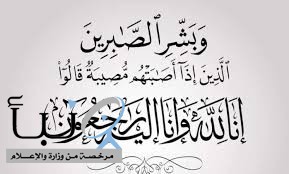 وَبَشِّرِ ٱلصَّٰبِرِينَ
ٱلَّذِينَ إِذَآ أَصَٰبَتۡهُم مُّصِيبَةٞ قَالُوٓاْ
إِنَّا لِلَّهِ وَإِنَّآ إِلَيۡهِ رَٰجِعُونَ
نبأ
مرخصة من وزارة والإعلام